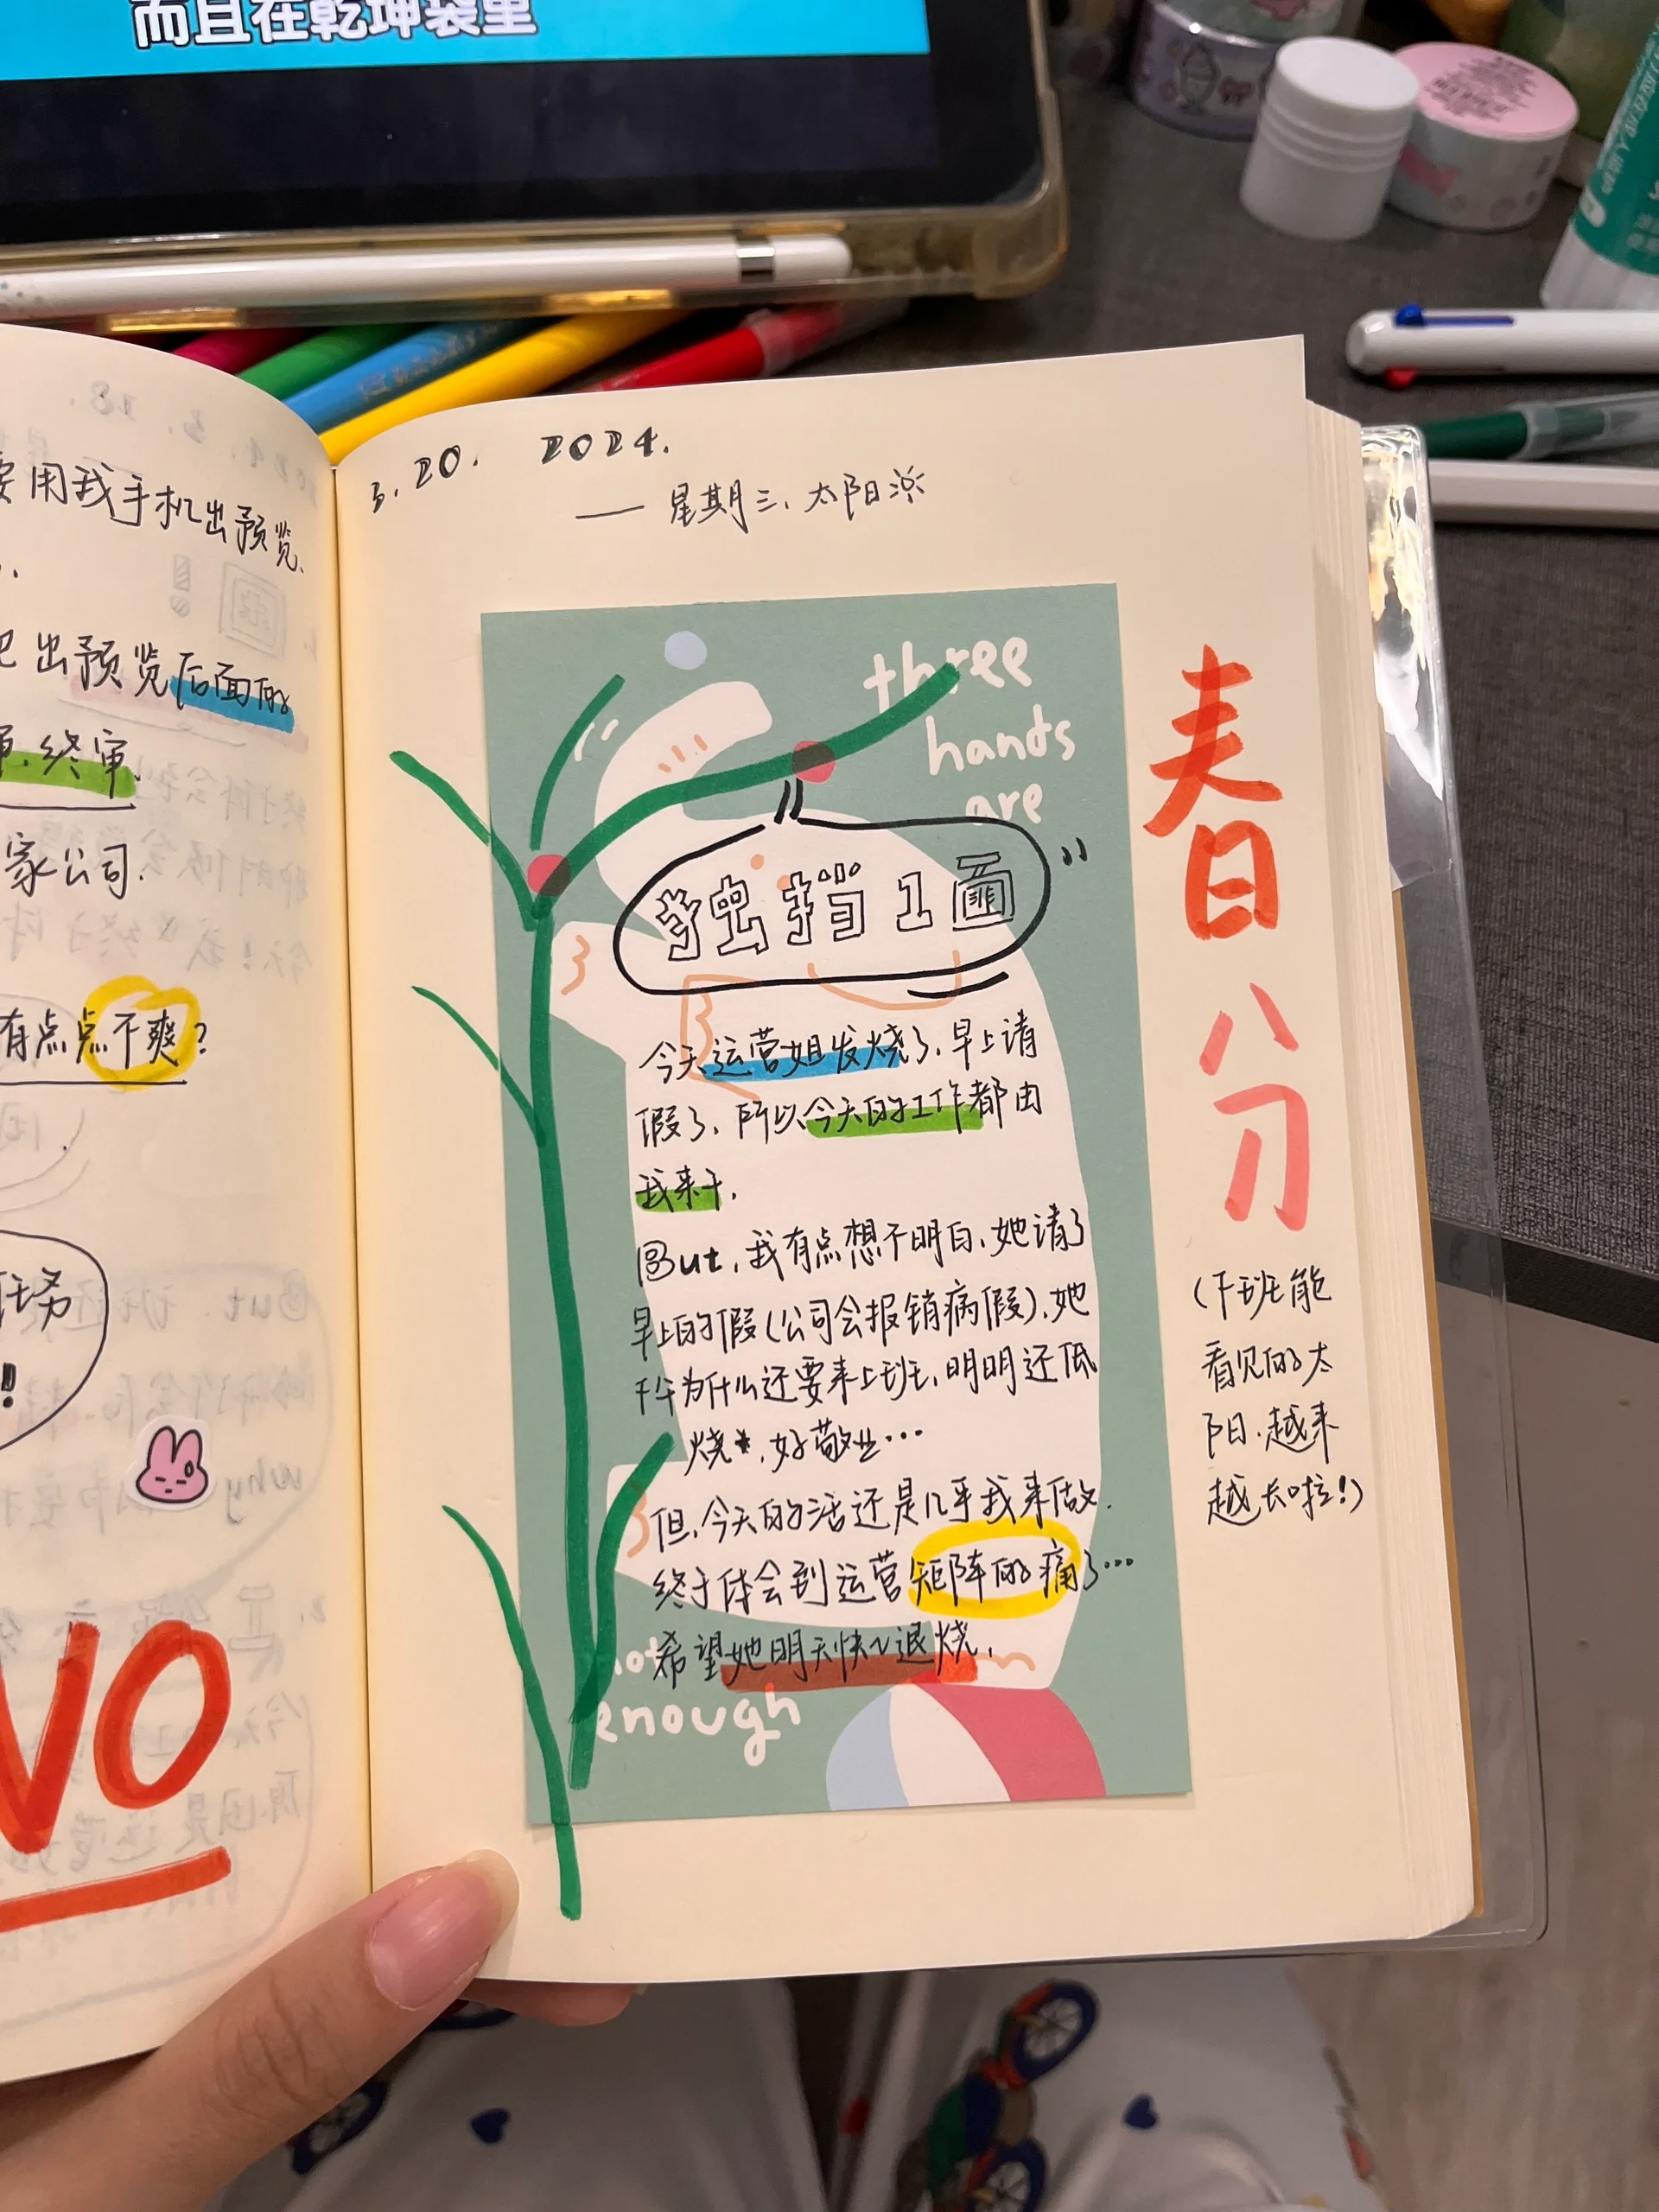 而且在乾坤袋里
要用我手机出预览.
出预览后面的
审.终审.
家公司.
有点点不爽?
任务
!
NO
3.20. 2024.
—— 星期三.太阳
three
hands
are
独挡1面
今天运营姐发烧了.早上请
假了.所以今天的工作都由
我来干.
But,我有点想不明白.她请了
早上的假(公司会报销病假).她
下午为什么还要来上班.明明还低
烧*.好敬业…
但.今天的活还是几乎我来做.
终于体会到运营矩阵的痛了…
希望她明天快~退烧.
not
enough
春分
(下班能
看见的太
阳.越来
越长啦!)